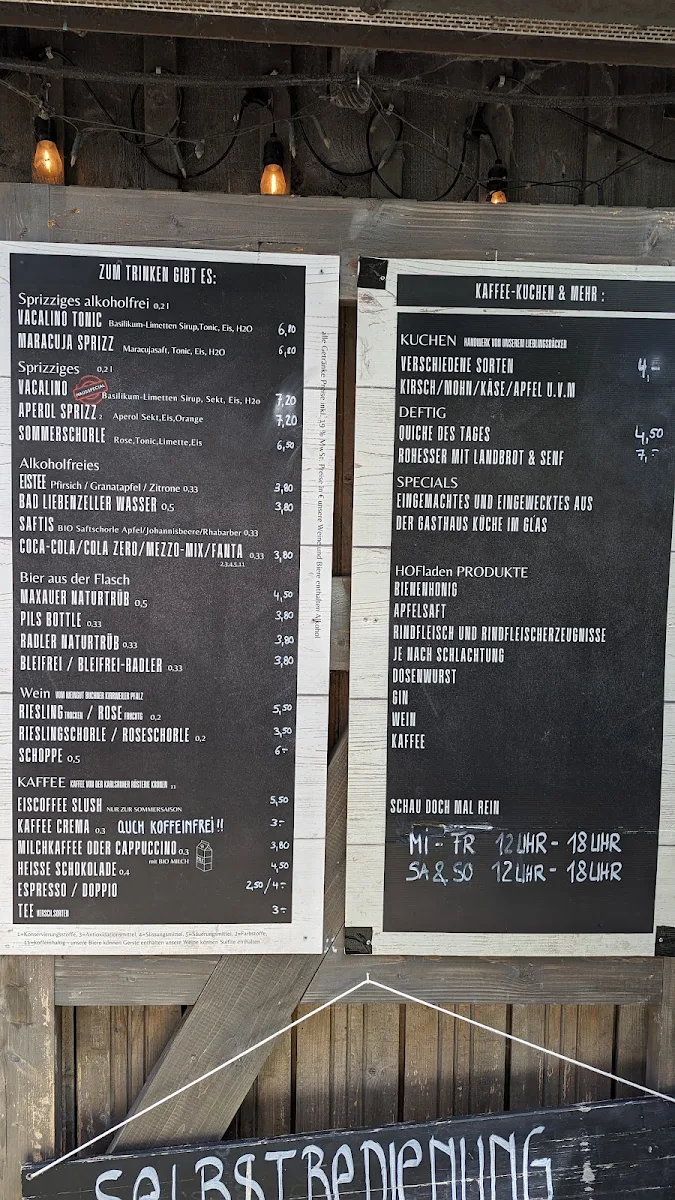 ZUM TRINKEN GIBT ES:
Sprizziges alkoholfrei 0,2 l
VACALINO TONIC Basilikum-Limetten Sirup,Tonic, Eis, H2O 6,80
MARACUJA SPRIZZ Maracujasaft, Tonic, Eis, H2O 6,80
Sprizziges 0,2 l
VACALINO HAUSSPECIAL Basilikum-Limetten Sirup, Sekt, Eis, H2o 7,20
APEROL SPRIZZ 2 Aperol Sekt,Eis,Orange 7,20
SOMMERSCHORLE Rose,Tonic,Limette,Eis 6,50
Alkoholfreies
EISTEE Pfirsich / Granatapfel / Zitrone 0,33 3,80
BAD LIEBENZELLER WASSER 0,5 3,80
SAFTIS BIO Saftschorle Apfel/Johannisbeere/Rhabarber 0,33
COCA-COLA/COLA ZERO/MEZZO-MIX/FANTA 0,33 3,80
2,3,4,5,11
Bier aus der Flasch
MAXAUER NATURTRÜB 0,5 4,50
PILS BOTTLE 0,33 3,80
RADLER NATURTRÜB 0,33 3,80
BLEIFREI / BLEIFREI-RADLER 0,33 3,80
Wein VOM WEINGUT
RIESLING TROCKEN / ROSE FRUCHTIG 0,2 5,50
RIESLINGSCHORLE / ROSESCHORLE 0,2 3,50
SCHOPPE 0,5 6-
KAFFEE KAFFEE VON DER KARLSRUHER RÖSTEREI 11
EISCOFFEE SLUSH NUR ZUR SOMMERSAISON 5,50
KAFFEE CREMA 0,3 AUCH KOFFEINFREI!! 3-
MILCHKAFFEE ODER CAPPUCCINO 0,3 3,80
mit BIO MILCH
HEISSE SCHOKOLADE 0,4 4,50
ESPRESSO / DOPPIO 2,50/4-
TEE VERSCH.SORTEN 3-
1=Konservierungsstoffe, 3=Antioxidationsmittel, 4=Süssungsmittel, 5=Säurungsmittel, 2=Farbstoffe,
11=koffeinhaltig - unsere Biere können Gerste enthalten unsere Weine können Sulfite enthalten
alle Getränke Preise inkl. 19 % MwSt. Preise in € unsere Weine und Biere enthalten Alkohol
KAFFEE-KUCHEN & MEHR :
KUCHEN HANDWERK VON UNSEREM LIEBLINGSBÄCKER
VERSCHIEDENE SORTEN 4,-
KIRSCH/MOHN/KÄSE/APFEL U.V.M
DEFTIG
QUICHE DES TAGES 4,50
ROHESSER MIT LANDBROT & SENF 7,-
SPECIALS
EINGEMACHTES UND EINGEWECKTES AUS
DER GASTHAUS KÜCHE IM GLAS
HOFladen PRODUKTE
BIENENHONIG
APFELSAFT
RINDFLEISCH UND RINDFLEISCHERZEUGNISSE
JE NACH SCHLACHTUNG
DOSENWURST
GIN
WEIN
KAFFEE
SCHAU DOCH MAL REIN
MI - FR 12 UHR - 18 UHR
SA & SO 12 UHR - 18 UHR
SELBSTBEDIENUNG